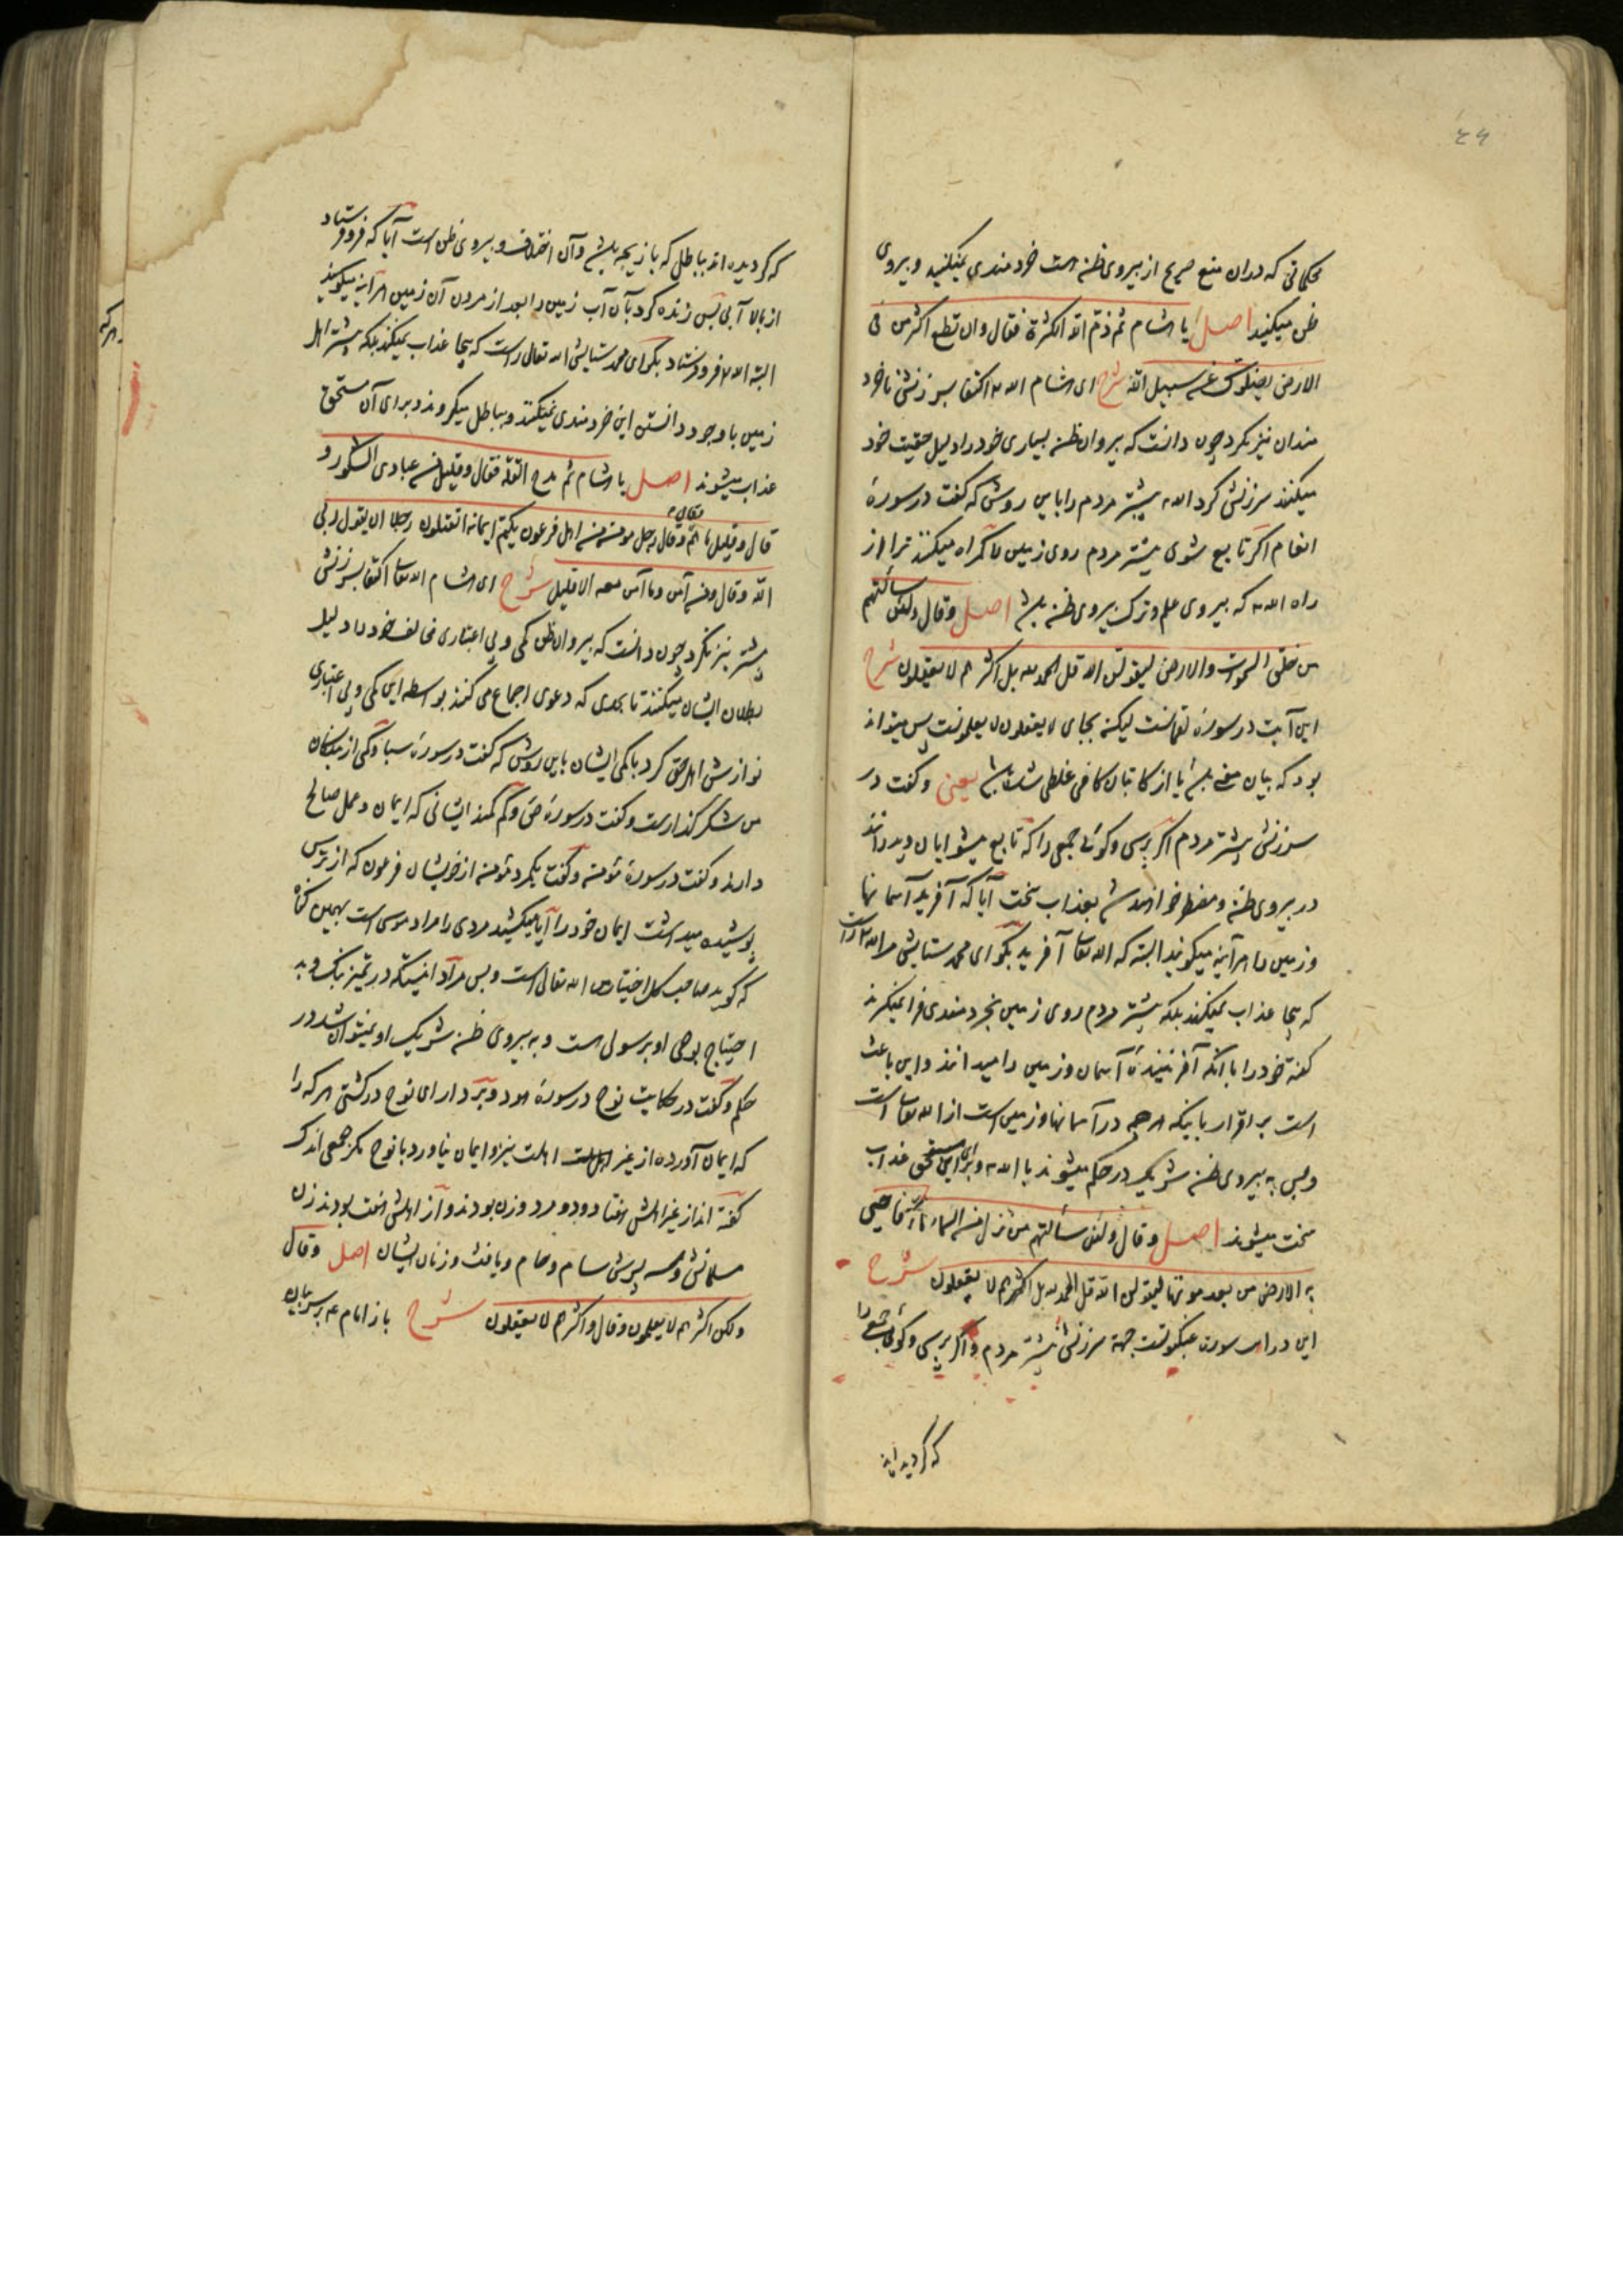 ۴۶
محکماتی که دران منع صریح از پیروی ظن است خردمندی نمیکنید و پیروی
ظن میکنید اصل یا هشام ثم ذم الله الکثرة فقال وان تطع اکثر من فی
الارض یضلوک عن سبیل الله شرح ای هشام الله اکتفا بسرزنش ناخرد
مندان نیز نکرد چون دانست که پیروان ظن بسیاری خود را دلیل حقیت خود
میکنند سرزنش کرد الله بیشتر مردم را باین روش که گفت در سورهٔ
انعام اگر تابع شوی بیشتر مردم روی زمین را گمراه میکنند ترا از
راه الله که پیروی علم و ترک پیروی ظن باشد اصل وقال ولئن سألتهم
من خلق السموات والارض لیقولن الله قل الحمد لله بل اکثرهم لا یعقلون شرح
این آیت در سورهٔ لقمانست لیکن بجای لا یعقلون لا یعلمونست پس میتواند
بود که بیان معنی باشد یا از کاتبان کافی غلطی شده باشد یعنی و گفت در
سرزنش بیشتر مردم اگر پرسی و گوئی جمعی را که تابع پیشوایان خود اند
در پیروی ظن و مضطر خواهند شد بعذاب سخت آیا که آفرید آسمانها
و زمین را هرآینه میگویند البته که الله تعالی آفرید بگو ای محمد ستایش مر الله راست
که بیجا عذاب نمیکند بلکه بیشتر مردم روی زمین بخردمندی فرا نمیگیرند
گفتهٔ خود را با آنکه آفرینندهٔ آسمان و زمین را میدانند و این باعث
است بر اقرار باینکه هرچه در آسمانها و زمین است از الله تعالی است
و پس به پیروی ظن شریک در حکم میشوند با الله و برای این مستحق عذاب
سخت میشوند اصل وقال ولئن سألتهم من نزل من السماء ماء فاحیی
به الارض من بعد موتها لیقولن الله قل الحمد لله بل اکثرهم لا یعقلون شرح
این در سورهٔ عنکبوتست جهة سرزنش بیشتر مردم و اگر پرسی و گوئی جمعی را
که گردیده اند
که گردیده اند بباطل که بازیچه باشد و آن اختلاف و پیروی ظن است آیا که فرو فرستاد
از بالا آبی پس زنده کرد بآن آب زمین را بعد از مردن آن زمین هرآینه میگویند
البته الله فرو فرستاد بگو ای محمد ستایش الله تعالی راست که بیجا عذاب نمیکند بلکه بیشتر اهل
زمین با وجود دانستن این خردمندی نمیکنند و بباطل میگروند و برای آن مستحق
عذاب میشوند اصل یا هشام ثم مدح القلة فقال وقلیل من عبادی الشکور و
قال وقلیل ما هم وقال وقال رجل مؤمن من اهل فرعون یکتم ایمانه اتقتلون رجلا ان یقول ربی
الله وقال ومن آمن وما آمن معه الا قلیل شرح ای هشام الله تعالی اکتفا بسرزنش
بیشتر نیز نکرد چون دانست که پیروان ظن کمی و بی اعتباری مخالف خود را دلیل
بطلان ایشان میکنند تا بحدی که دعوی اجماع می کنند بواسطه این کمی و بی اعتباری
نوازش اهل حق کرد با کمی ایشان باین روش که گفت در سورهٔ سبا و کمی از بندگان
من شکر گذارست و گفت در سورهٔ ص و کم کمند ایشانی که ایمان و عمل صالح
دارند و گفت در سورهٔ مؤمن و گفت یکمرد مؤمن از خویشان فرعون که از ترس
پوشیده میداشت ایمان خود را آیا میکشید مردی را مراد موسی است بهمین گناه
که گوید صاحب کل اختیار من الله تعالی است و بس مراد اینستکه در تمیز نیک و بد
احتیاج بوحی او برسولی است و به پیروی ظن شریک او نمیتوان شد در
حکم و گفت در حکایت نوح در سورهٔ هود و بردار ای نوح در کشتی هر که را
که ایمان آورده از غیر اهلت اهلت نیز و ایمان نیاورد با نوح مگر جمعی اندک
گفته اند از غیر اهلش هفتاد و دو مرد و زن بودند و از اهلش هشت بودند زن
مسلمانش و سه پسرش سام و حام و یافث و زنان ایشان اصل وقال
ولکن اکثرهم لا یعلمون وقال واکثرهم لا یعقلون شرح باز امام ع بر سر بیان
هرکه